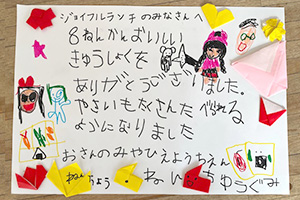 ジョイフルランチのみなさんへ
8ねんかんおいしい
きゅうしょくを
ありがとうございました。
やさいもたくさんたべれる
ようになりました
おさんのみやひようちえん
ちゅうぐみ